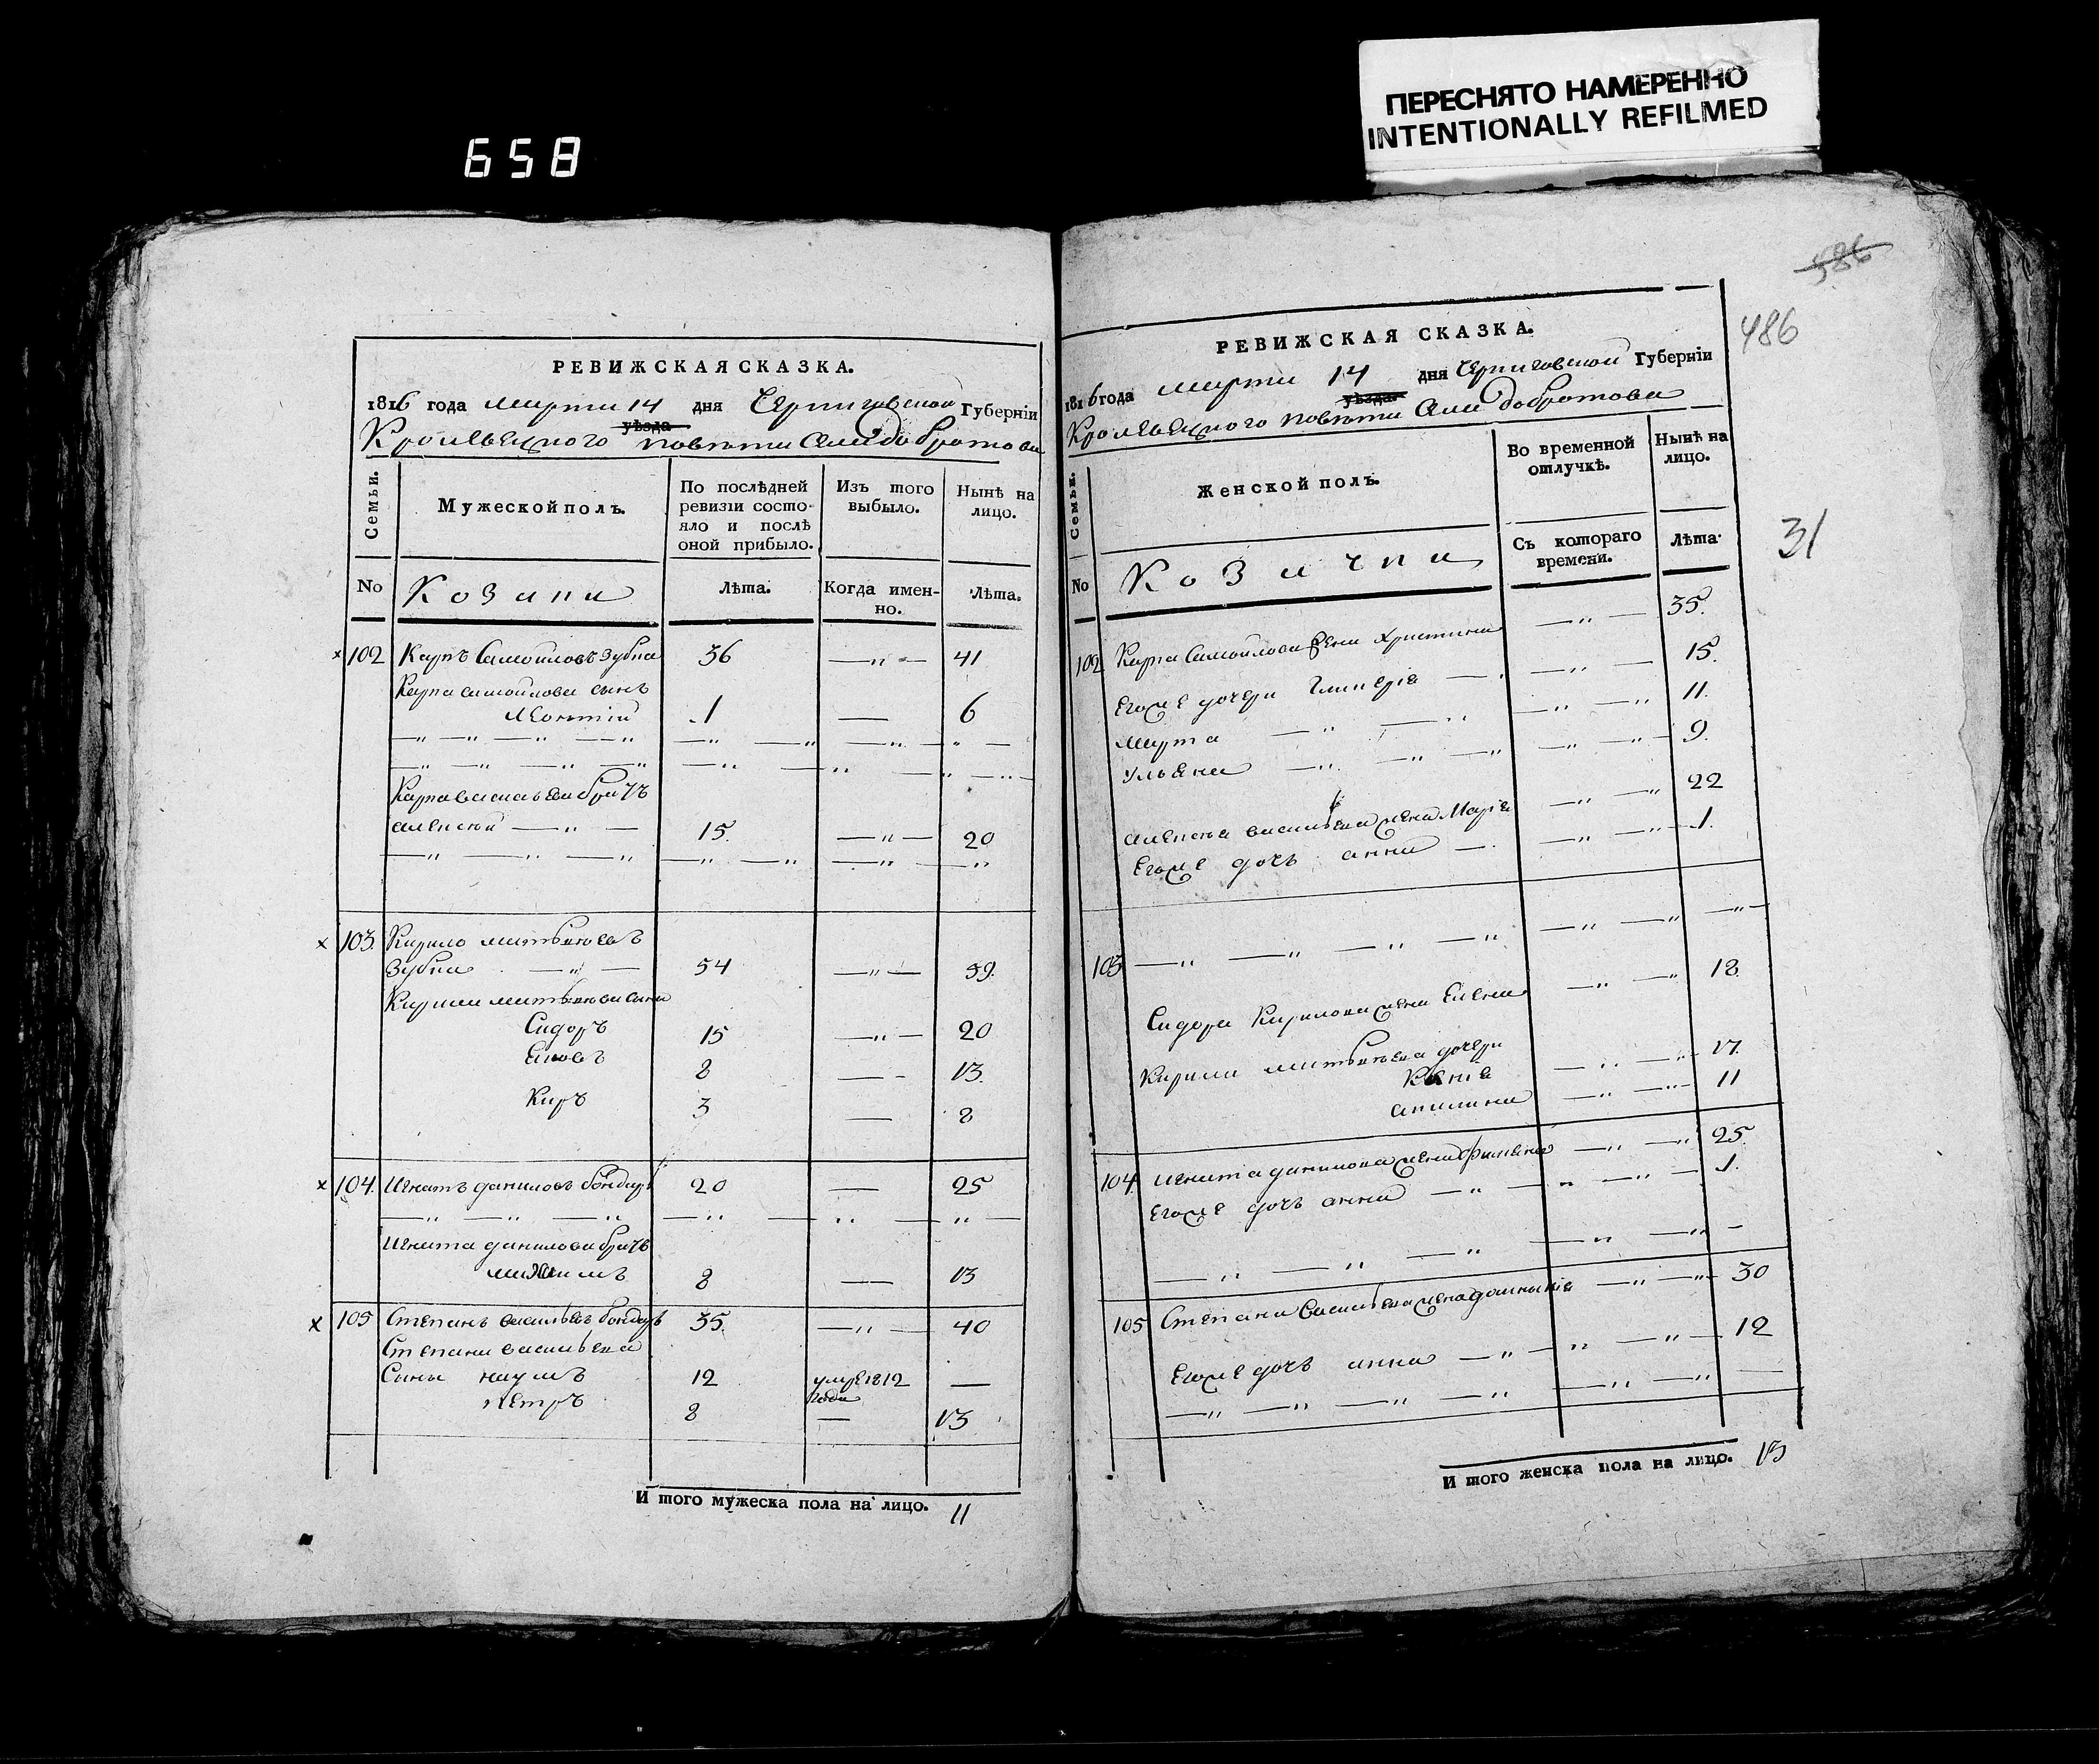 ПЕРЕСНЯТО НАМЕРЕННО
INTENTIONALLY REFILMED
658
586
486
31
РЕВИЖСКАЯ СКАЗКА.
1816 года марта 14 дня Черниговской Губерніи
уѣзда
Кролевецкого повѣта Села Добротова
Семьи.
Мужеской полъ.
По послѣдней ревизіи состо-
яло и послѣ
оной прибыло.
Изъ того
выбыло.
Нынѣ на
лицо.
No
Козаки
Лѣта.
Когда имен-
но.
Лѣта.
102 Карпъ Самойловъ Зубка 36 —„— 41
Карпа самойлова сынъ
Леонтій 1 — 6
Карпа васильева братъ
алексѣй —„— 15. —„— 20
103. Кирило матвѣевъ
Зубка —„— 54 —„— 59.
Кирила матвѣева сыны
Сидоръ 15 —„— 20
Яковъ 8 — 13.
Киръ 3 — 8
104. Игнатъ даниловъ бондарь 20 — 25
Игната данилова братъ
максимъ 8 — 13
105 Степанъ васильевъ бондарь 35. —„— 40
Степана васильева
Сыны наумъ 12 умре 1812 —
года
петръ 8 — 13
И того мужеска пола на лицо. 11
РЕВИЖСКАЯ СКАЗКА.
1816 года марта 14 дня Черниговской Губерніи
уѣзда
Кролевецкого повѣта Села Добротова
Семьи.
Женской полъ.
Во временной
отлучкѣ.
Нынѣ на
лицо.
No
Козачки
Съ котораго
времени.
Лѣта.
102 Карпа Самойлова жена Христина —„— 35.
Егоже дочери Гликерія —„— 15.
марта —„— 11.
ульяна —„— 9.
алексѣя васильева жена Марія —„— 22
Егоже дочь анна —„— 1.
103 —„— —„— —„— —„—
Сидора Кирилова жена Елена —„— 18
Кирила матвѣева дочери
Ксенія —„— 17.
акилина —„— 11
104. Игната данилова жена —„— 25.
Егоже дочь анна —„— 1.
105 Степана васильева жена —„— 30
Егоже дочь анна —„— 12
И того женска пола на лицо. 13